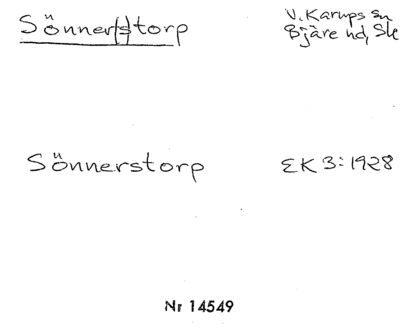 Sönner(s)torp
V. Karups sn
Bjäre hd, Sk
Sönnerstorp
EK 3:1928
Nr 14549